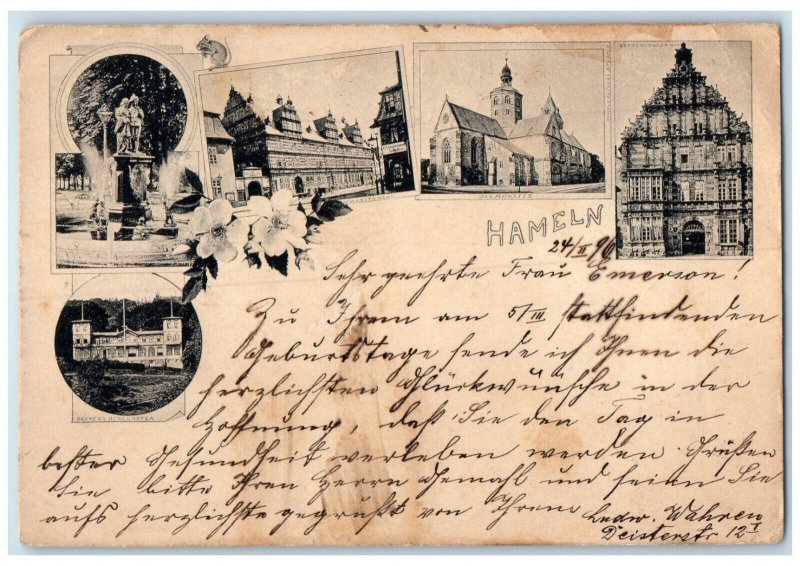 RATTENFÄNGERHAUS
HOCHZEITSHAUS
DAS MÜNSTER
HAMELN
24/II 96
Sehr geehrte Frau Emerson!
Zu Ihrem am 5/III stattfindenden
Geburtstage sende ich Ihnen die
herzlichsten Glückwünsche in der
Hoffnung, daß Sie den Tag in
bester Gesundheit verleben werden. Grüßen
Sie bitte Ihren Herrn Gemahl und seien Sie
aufs herzlichste gegrüßt von Ihrem Ludw. Wahren
Deisterstr 12 I
DREYERS BERGGARTEN